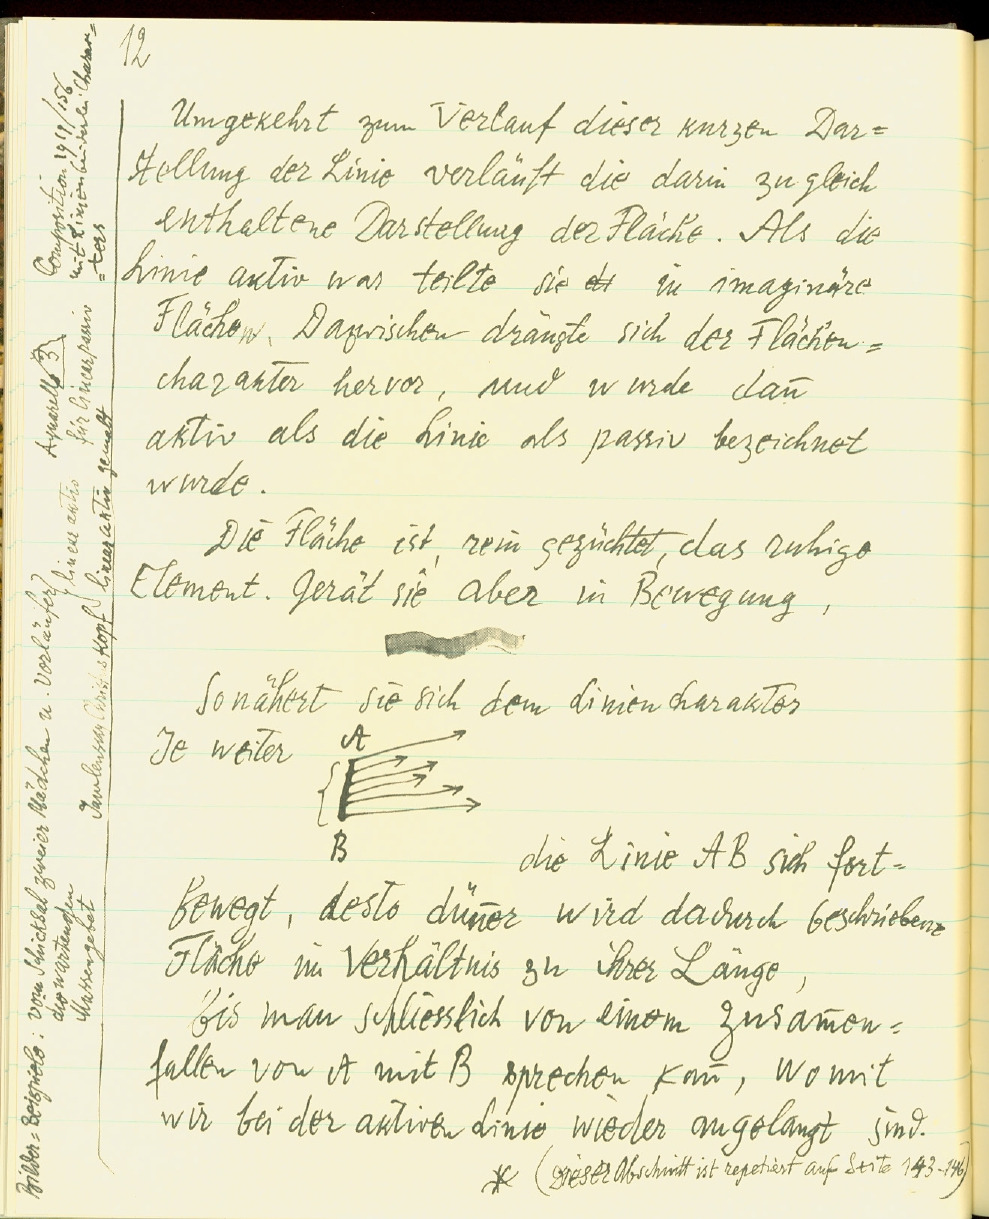 12
Umgekehrt zum Verlauf dieser kurzen Dar=
stellung der Linie verläuft die darin zugleich
enthaltene Darstellung der Fläche. Als die
Linie aktiv war teilte sie in imaginäre
Flächen. Dazwischen drängte sich der Flächen=
charakter hervor, und wurde dan̄
aktiv als die Linie als passiv bezeichnet
wurde.
Die Fläche ist, rein gezüchtet, das ruhige
Element. Gerät sie aber in Bewegung,
So nähert sie sich dem Liniencharakter
Je weiter
A
B
die Linie AB sich fort=
bewegt, desto dün̄er wird dadurch beschriebene
Fläche im Verhältnis zu ihrer Länge,
bis man schliesslich von einem Zusam̄en=
fallen von A mit B sprechen kan̄, womit
wir bei der aktiven Linie wieder angelangt sind.
* (Dieser Abschnitt ist repetiert auf Seite 143-146)
Bilder=Beispiele: vom Schicksal zweier Mädchen u. Vorläufer
die wartenden
Massengebet
linear aktiv
Jawlensky Christuskopf linear aktiv gemalt
Aquarelle 3
für linear passiv
Composition 1919/156
mit Linien
=ters